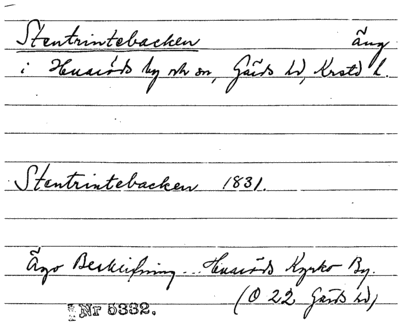 Stentrintebacken äng
i Huaröds by och sn, Gärds hd, Krstd l.
Stentrintebacken 1831.
Ägo Beskrifning... Huaröds Kyrko By.
(O 22 Gärds hd)
Nr 5332.